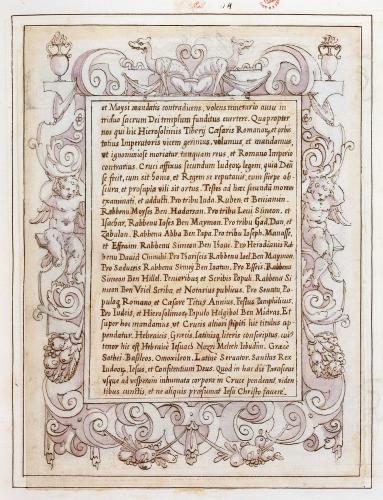 et Maysi mandatis contradicens, volens temerario ausu in
triduo sacrum Dei templum funditus euertere. Quapropter
nos qui hic Hierosolimis Tiberij Cæsaris Romanor, et orbis
totius Imperatoris vicem gerimus, volumus, et mandamus,
vt ignominiose moriatur tanquam reus, et Romano Imperio
contrarius. Cruci affixus secundum Iudeor, legem, quia Deũ
se fecit, cum sit homo, et Regem se reputauit, cum stirpe ob-
scura, et prosapia vili sit ortus. Testes ad hæc secundũ morem
examinati, et adducti. Pro tribu Iuda. Ruben, et Beniamin.
Rabbenu Moyses Ben Hadarsan. Pro tribu Leui Simeon, et
Isachar, Rabbenu Ioses Ben Maymon. Pro tribu Gad, Dan, et
Zabulon. Rabbenu Abba Ben Pape. Pro tribu Ioseph, Manasse,
et Effraim Rabbenu Simeon Ben Pro Herodianis Rab
benu Dauid Chimchi Pro Phariseis Rabbenu Ben Maymon
Pro Saducæis Rabbenu Ben Pro Esseis. Rabbenu
Simeon Ben Hillel. Pro scribis Populi. Rabbenu Si
meon Ben Vriel Scriba, et Notarius publicus. Pro Senatu, Po
pulaq Romano et Cæsare Titus Annius, Festus Pamphilicus.
Pro Iudeis, et Hierosolimor, Populo Heigibol Ben Midras. Et
super hoc mandamus, vt Crucis altiori stipiti hic titulus ap
pendatur. Hebraicis, Græcis, Latinisq; literis conscriptus. cui9
tenor hic est Hebraicè Iesuach Nozrj Melech Græcè
Basileos. Latine Seruator. Sanctus Rex
Iudeor, Iesus, et Confitentium Deus. Quod in hac die Parasceue
vsque ad vesperam inhumata corpora in Cruce pendeant, viden
tibus cunctis, et ne aliquis præsumat Iesu Christo fauere.